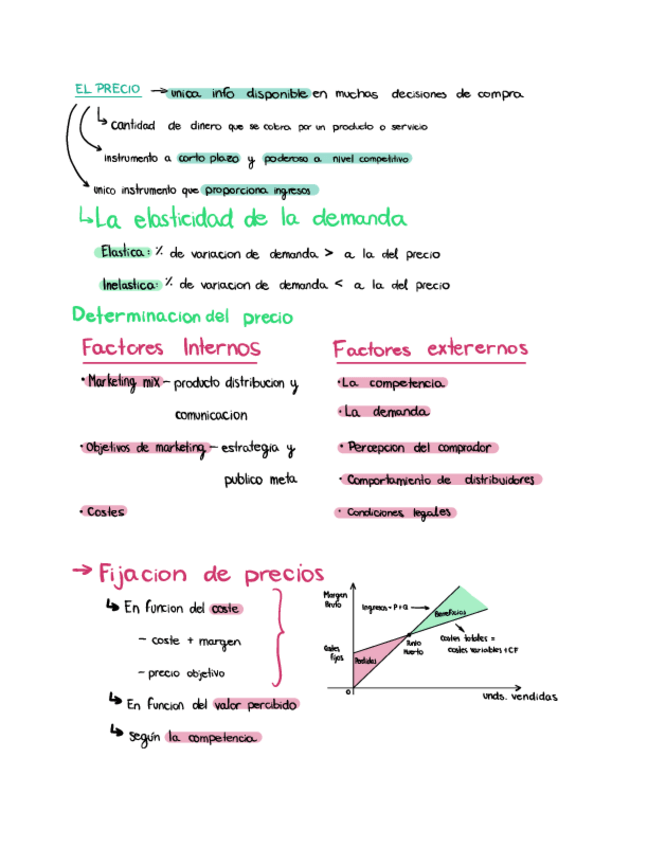 EL PRECIO → unica info disponible en muchas decisiones de compra
cantidad de dinero que se cobra por un producto o servicio
instrumento a corto plazo y poderoso a nivel competitivo
unico instrumento que proporciona ingresos
La elasticidad de la demanda
Elastica: % de variacion de demanda > a la del precio
Inelastica: % de variacion de demanda < a la del precio
Determinacion del precio
Factores Internos
• Marketing mix – producto distribucion y
comunicacion
• Objetivos de marketing – estrategia y
publico meta
• Costes
Factores exterernos
• La competencia
• La demanda
• Percepcion del comprador
• Comportamiento de distribuidores
• Condiciones legales
→ Fijacion de precios
En funcion del coste
– coste + margen
– precio objetivo
En funcion del valor percibido
según la competencia
Margen
Bruto
Ingresos = P+Q →
Beneficios
Costes totales =
costes variables + CF
Punto
Muerto
fijos
Perdidas
0
unds. vendidas